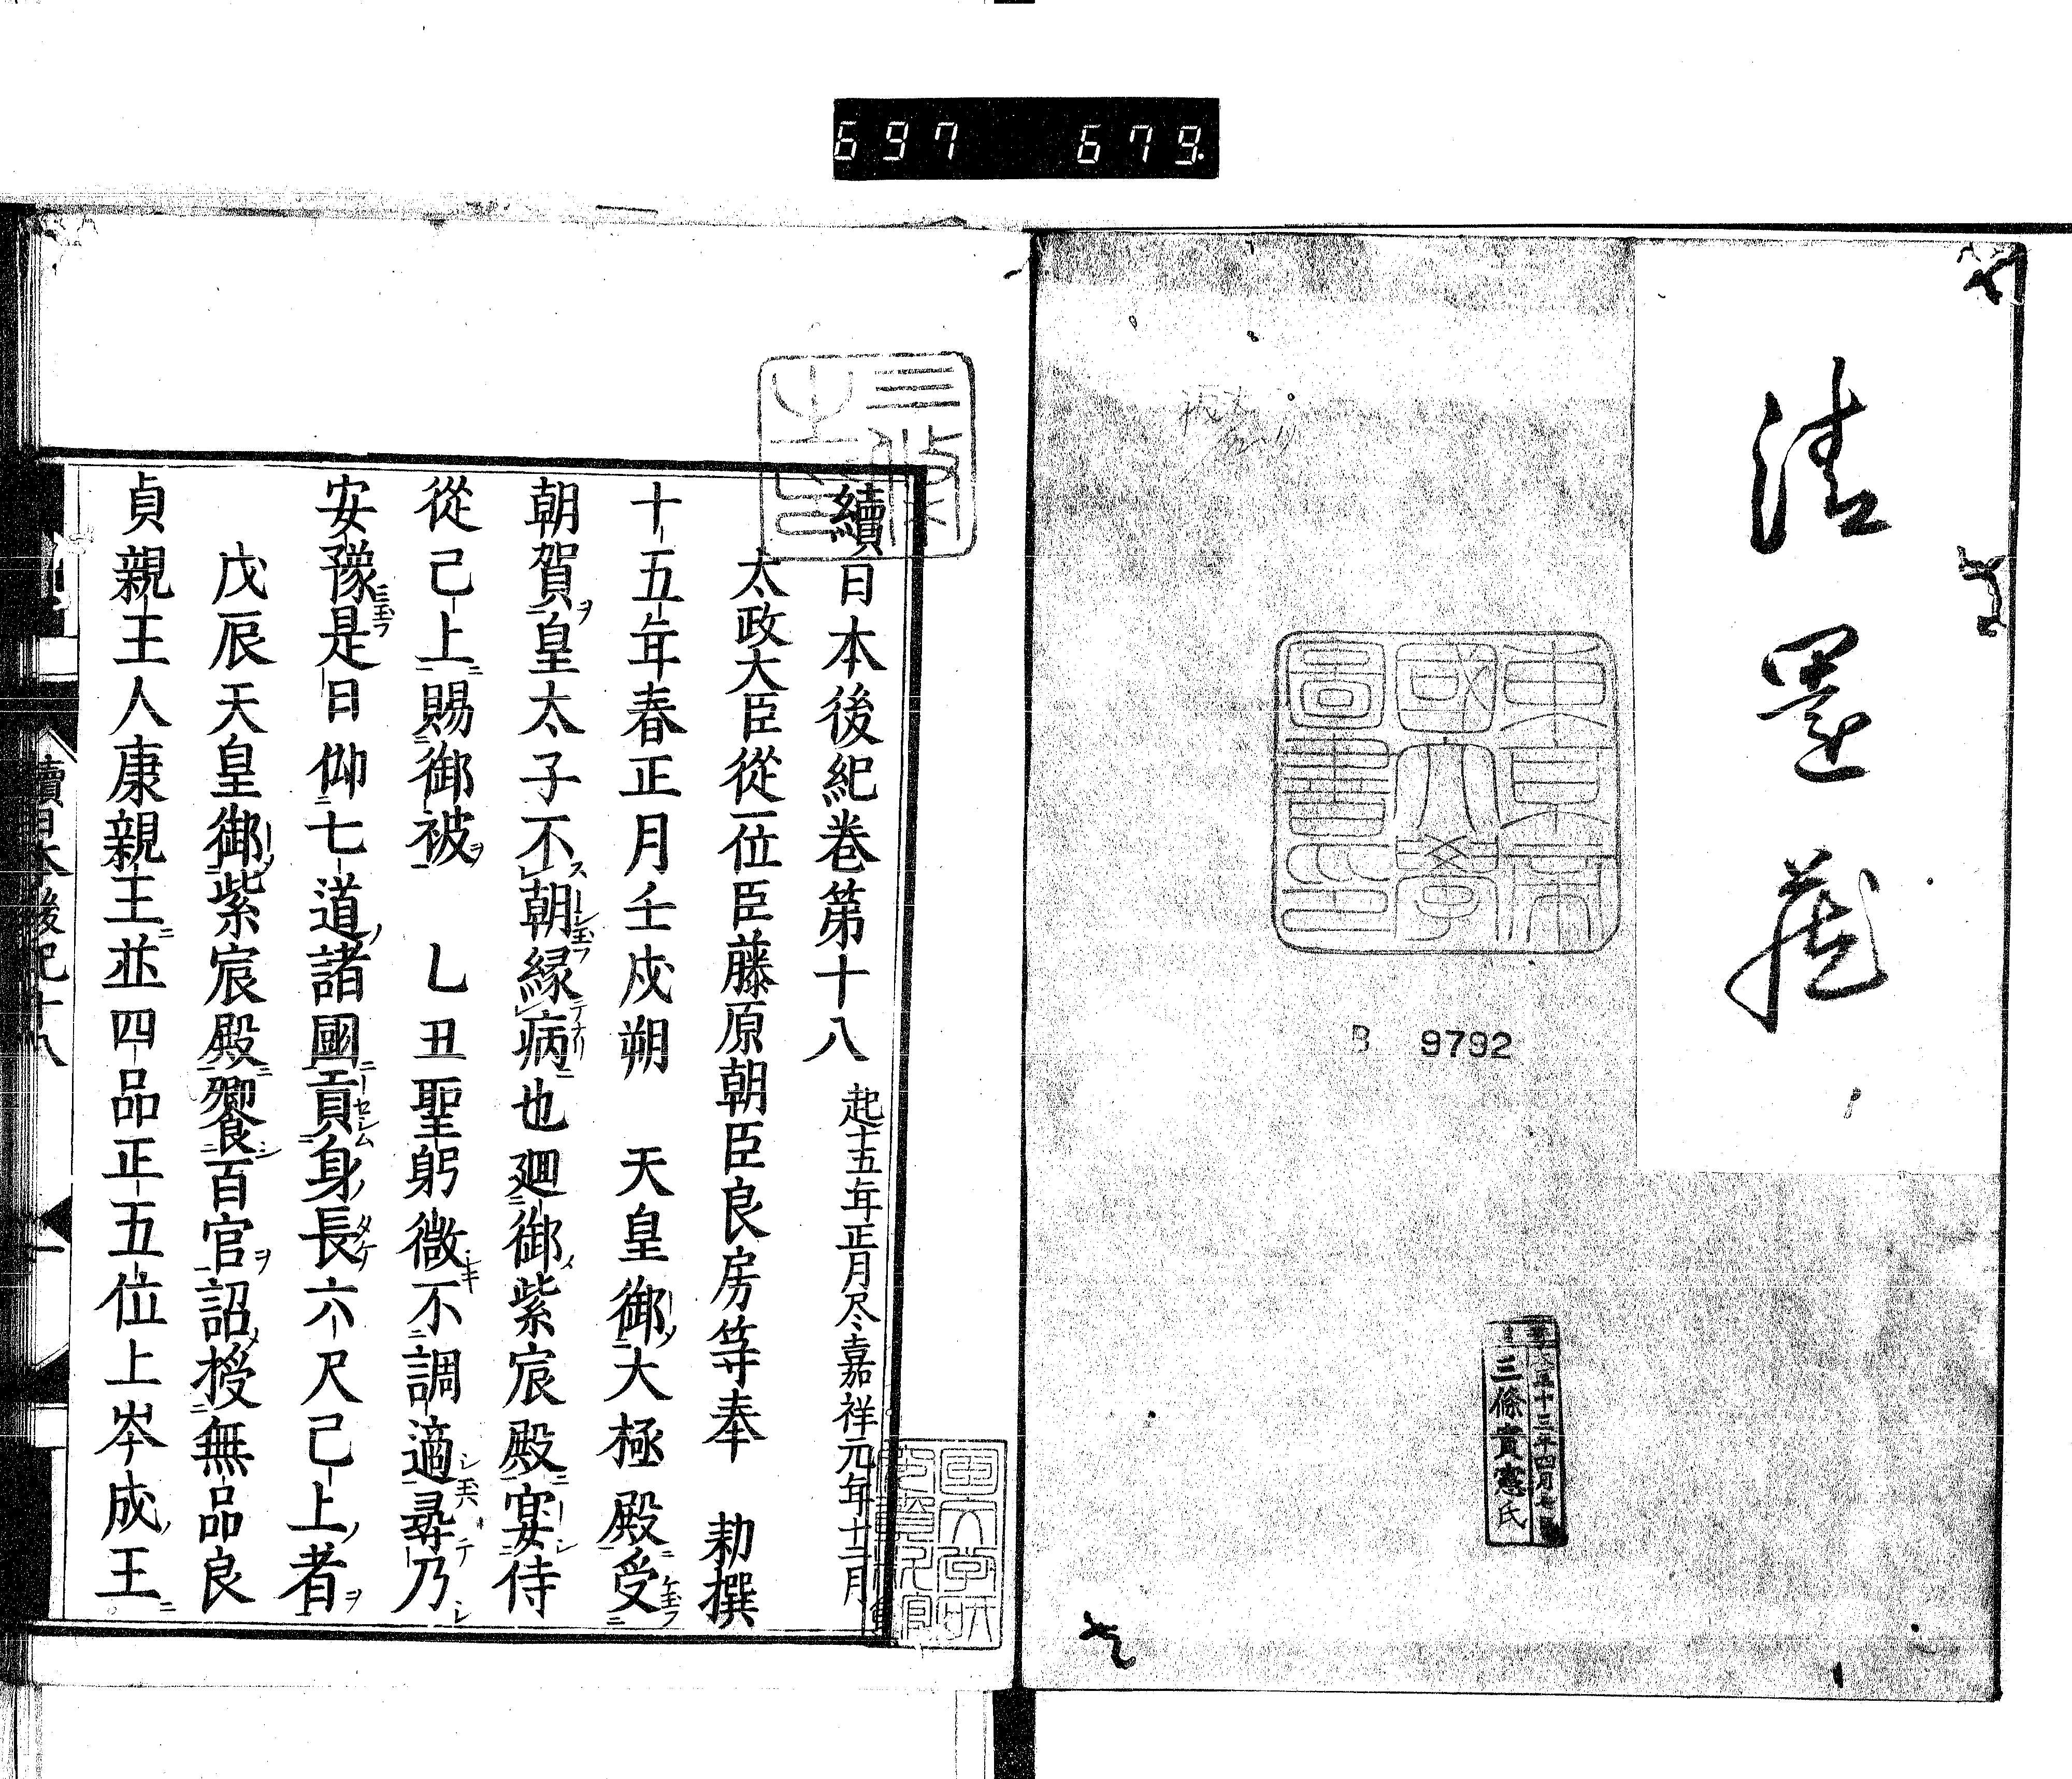 697 679
東京帝
國大學
圖書印
B 9792
三條實憲氏
三條
續日本後紀巻第十八 起十五年正月尽嘉祥元年十二月
太政大臣從一位臣藤原朝臣良房等奉 勅撰
十五年春正月壬戌朔 天皇御大極殿受
朝賀皇太子不朝縁病也廻御紫宸殿宴侍
從己上賜御被 乚丑聖躬微不調適尋乃
安豫是日仰七道諸國貢身長六尺己上者
戊辰天皇御紫宸殿饗百官詔授無品良
貞親王人康親王並四品正五位上岑成王
續日本後紀十八